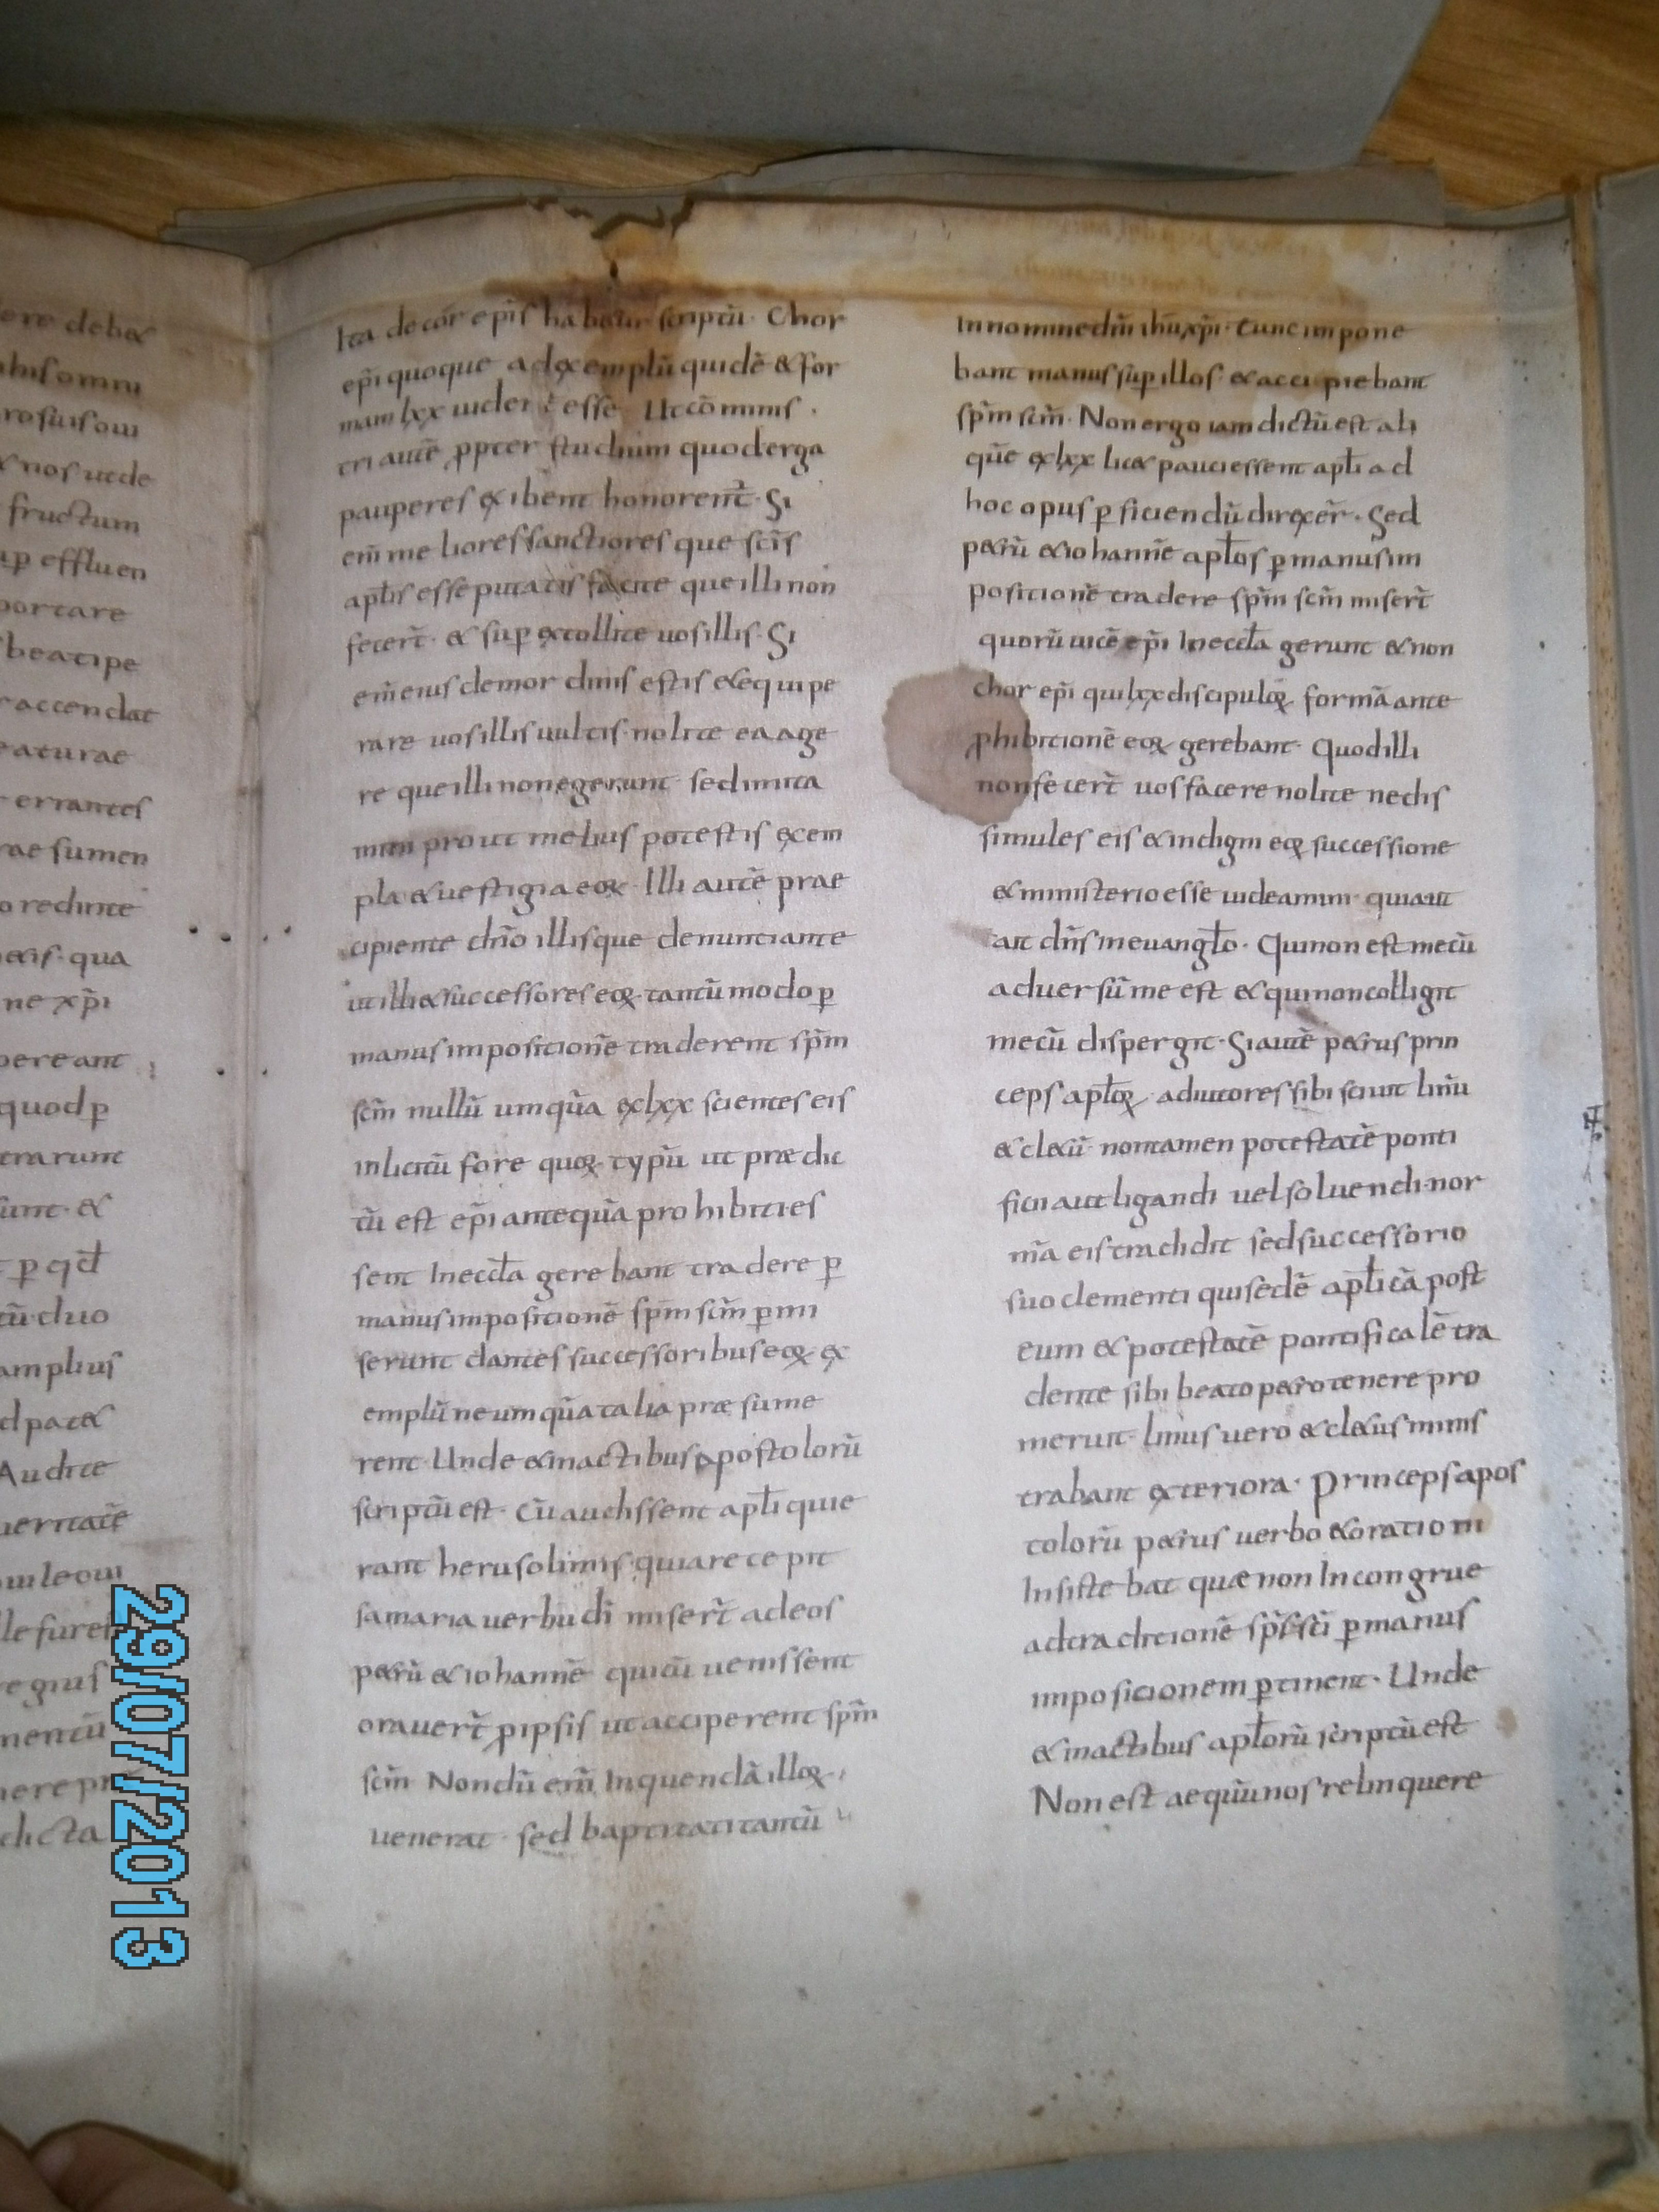 ere debet
nisi omni
ro suis oui
et nos ut de
fructum
sup effluen
portare
beati pe
accendat
eaturae
errantes
rae sumen
o redinte
exis· qua
ne xp̄i
pereant
quod p
trarunt
sunt· et
p qd̄
tū· duo
amplius
d patet
Audite
ueritatē
uile oui
le furet
regius
mentū
nere
dicta
Ita de cōr ep̄is habetur scriptū· Chor
ep̄i quoque ad exemplū quidē & for
mam lxx uider t̄ esse Ut cō minis
tri autē ppter studium quod erga
pauperes exibent honorent̄· Si
em̄ meliores sanctiores que sc̄is
apl̄is esse putatis facite que illi non
fecer̄t· & sup extollite uos illis· Si
em̄ eius demor dinis estis & equipe
rare uos illis uultis· nolite ea age
re que illi non egerunt· sed imita
mini prout melius potestis exem
pla & uestigia eoꝝ· Illi autē prae
cipiente dn̄o illisque denuntiante
ut illi & successores eoꝝ· tantū modo p
manus impositionē traderent sp̄m
sc̄m nullū umquā ex lxx scientes eis
inlicitū fore quoꝝ typū ut prædic
tū est ep̄i antequā prohibiti es
sent In eccl̄a gerebant tradere p
manus impositionē sp̄m sc̄m pmi
serunt dantes successoribus eoꝝ ex
emplū ne umquā talia præsume
rent· Unde & in actibus apostolorū
scriptū est· Cū audissent apl̄i qui e
rant herusolimis· quia recepit
samaria uerbū dī miser̄t ad eos
petrū & iohannē qui cū uenissent
orauer̄t p ipsis ut acciperent sp̄m
sc̄m Nondū em̄ In quendā illoꝝ
uenerat· sed baptizati tantū
In nomine dn̄i ih̄u xp̄i· tunc impone
bant manus sup illos· & accipiebant
sp̄m sc̄m· Non ergo iam dictū est ali
quē ex lxx licet pauci essent apl̄i ad
hoc opus pficiendū direxer̄· Sed
petrū & iohannē apl̄os p manus im
positionē tradere sp̄m sc̄m miser̄t
quorū uicē ep̄i In eccl̄a gerunt & non
chor ep̄i qui lxx discipuloꝝ formā ante
phibitionē eoꝝ gerebant· Quod illi
non fecer̄t uos facere nolite ne dis
similes eis & indigni eoꝝ successione
& ministerio esse uideamini· quia ut
ait dn̄s in euangl̄o· Qui non est mecū
aduersū me est & qui non colligit
mecū dispergit· Si autē petrus prin
ceps apl̄oꝝ· adiutores sibi sciuit linū
& cletū· non tamen potestatē ponti
ficii aut ligandi uel soluendi· nor
mā eis tradidit sed successorio
suo clementi qui sedē apl̄icā post
eum & potestatē pontificalē tra
dente sibi beato petro tenere pro
meruit· linus uero & cletus minis
trabant exteriora· Princeps apos
tolorū petrus uerbo & orationi
Insistebat quæ non Incongrue
ad traditionē sp̄s sc̄i p manus
imposicionem ptinent· Unde
& in actibus apl̄orū scriptū est
Non est aequū nos relinquere
29/07/2013